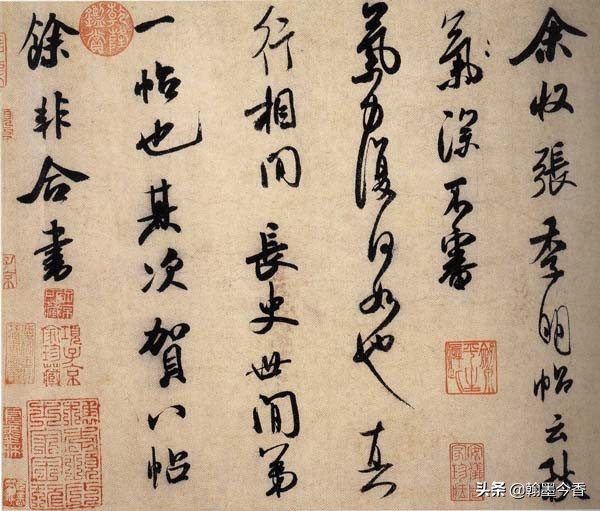 余收張季明帖云秋
氣深不審
氣力復何如也真
行相間長史世間第
一帖也其次賀八帖
餘非合書
乾隆鑑賞
項子京家珍藏
头条 @翰墨今香